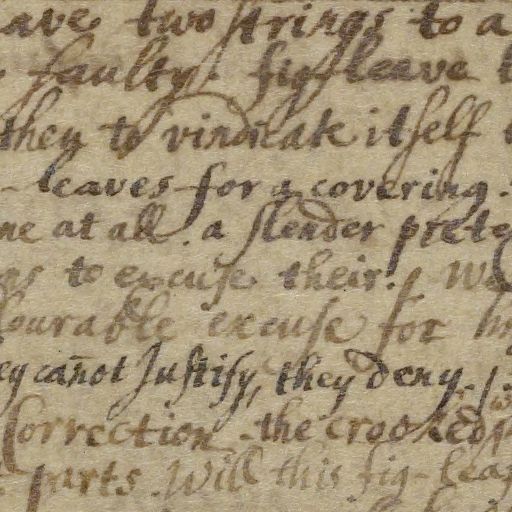 ave two strings to a
faulty. fig-leave
they to vindicate itself
leaves for a covering.
ne at all. a slender prete
as to excuse their. We
lourable excuse for
ey cañot Justify, they deny.
Correction. the crooked
parts. Will this fig-leaf